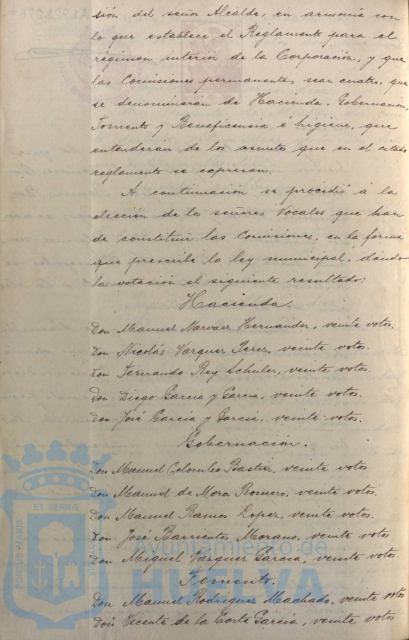 sión del señor Alcalde, en armonía con
lo que establece el Reglamento para el
régimen interior de la Corporación, y que
las Comisiones permanente, sean cuatro, que
se denominarán de Hacienda, Gobernación,
Fomento y Beneficencia é higiene, que
entenderán de los asuntos que en el citado
reglamento se expresan.
A continuación se procedió á la
elección de los señores Vocales que han
de constituir las Comisiones, en la forma
que prescribe la ley municipal, dando
la votación el siguiente resultado:
Hacienda.
Don Manuel Narvaez Hernandez, veinte votos.
Don Nicolás Vazquez Perez, veinte votos.
Don Fernando Rey Schuler, veinte votos.
Don Diego Garcia y Garcia, veinte votos.
Don José Garcia y Garcia, veinte votos.
Gobernación.
Don Manuel Colombo Bastir, veinte votos
Don Manuel de Mora Romero, veinte votos.
Don Manuel Ramos Lopez, veinte votos.
Don José Barrientos Morano, veinte votos
Don Miguel Vazquez Garcia, veinte votos
Fomento.
Don Manuel Rodriguez Machado, veinte votos
Don Vicente de la Corte Garcia, veinte votos
PORTUS MARIS
ET TERRAE
Ayuntamiento de
HUELVA